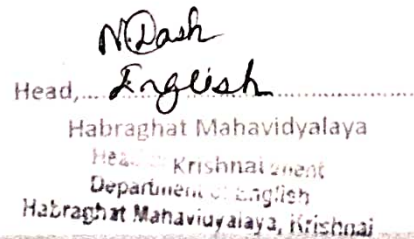 N. Dash
Head, ...English...
Habraghat Mahavidyalaya
Head Krishnai
Department of English
Habraghat Mahavidyalaya, Krishnai